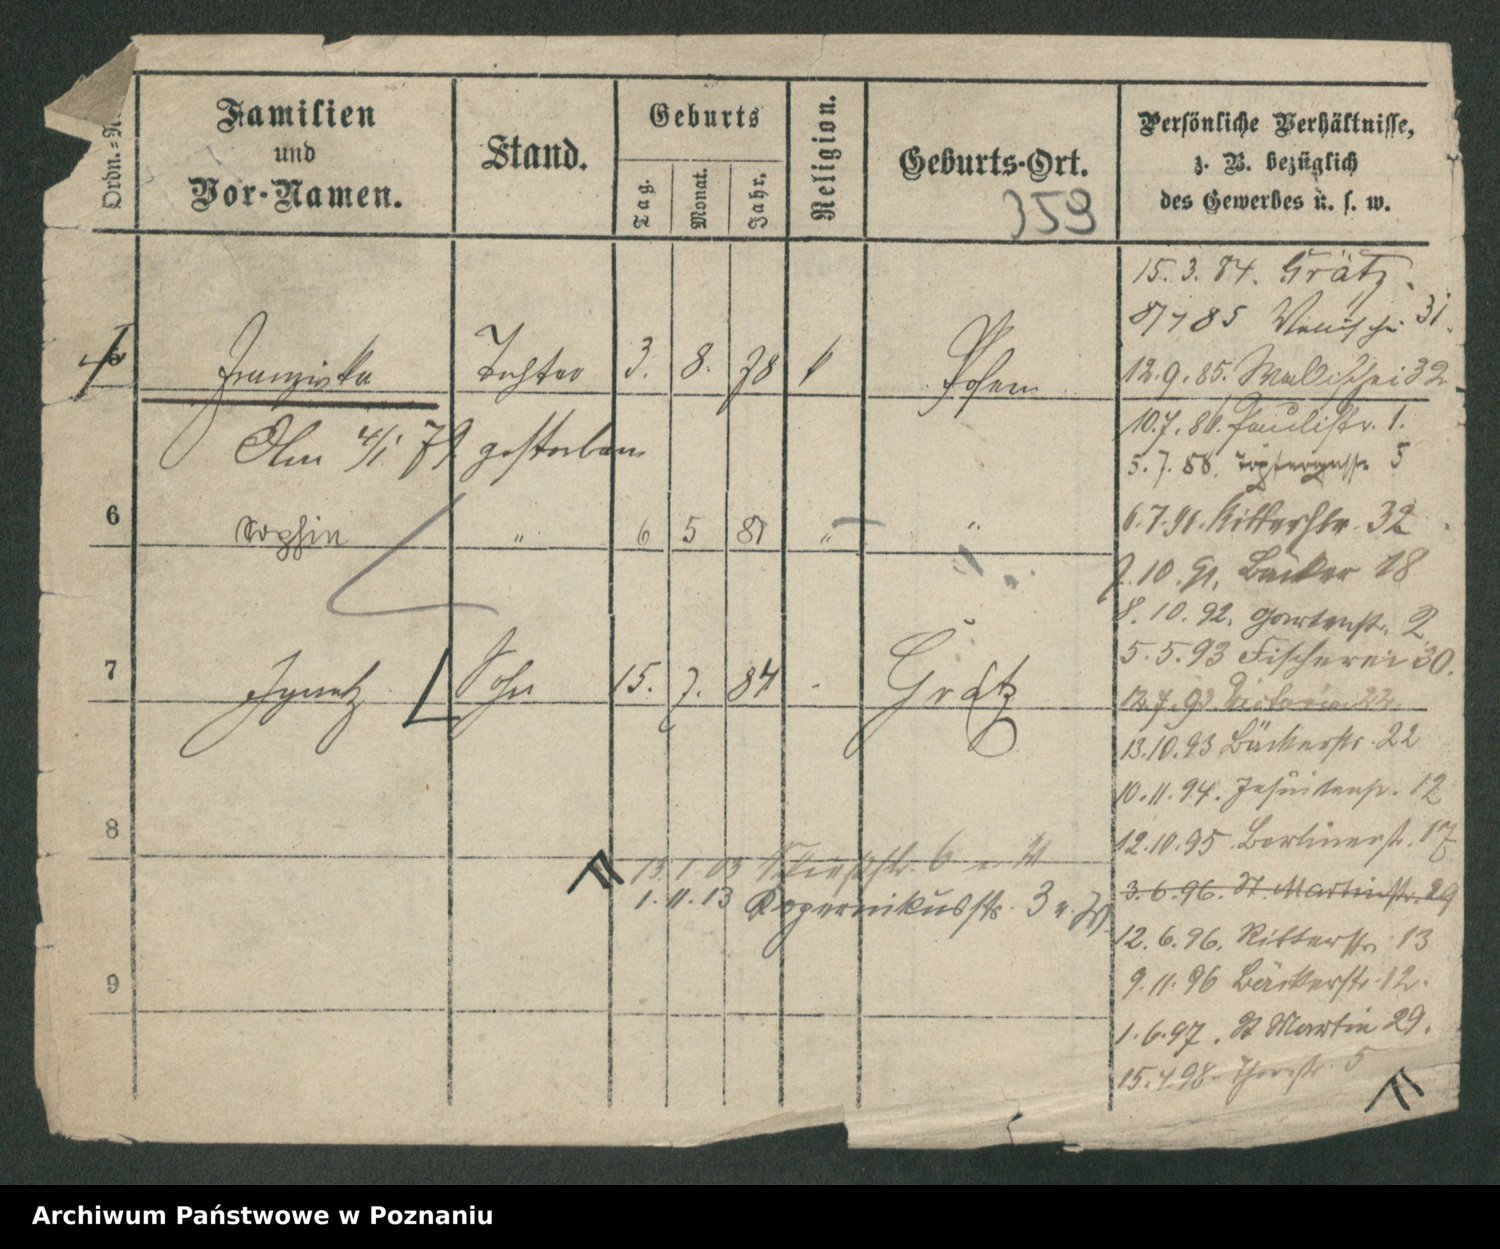 Ordn.=Nr.
Familien
und
Vor-Namen.
Stand.
Geburts
Tag.
Monat.
Jahr.
Religion.
Geburts-Ort.
359
Persönliche Verhältnisse,
z. B. bezüglich
des Gewerbes u. s. w.
5 Franziska Tochter 3. 8. 78 k Posen
Am 4/1. 79 gestorben
6 Sophie " 6 5 81 " "
7 Ignatz Sohn 15. 7. 84 Grätz
8
13.1.03 6
1.11.13 Kopernikusstr. 3 b. W.
9
15.3.84. Grätz.
8/7 85 31.
12.9.85. Wallischei 32
10.7.86. Paulistr. 1.
5.7.88. Töpfergasse 5
6.7.91. Ritterstr. 32
7.10.91. Bäcker 18
8.10.92. Gartenstr. 2
5.5.93 Fischerei 30.
12.7.93 Victoria 22
13.10.93 Bäckerstr. 22
10.11.94. Jesuitenstr. 12
12.10.95. Berlinerstr. 17
3.6.96. St. Martinstr. 29
12.6.96. Ritterstr. 13
9.11.96 Bäckerstr. 12.
1.6.97. St Martin 29.
15.4.98. Thorstr. 5
Archiwum Państwowe w Poznaniu